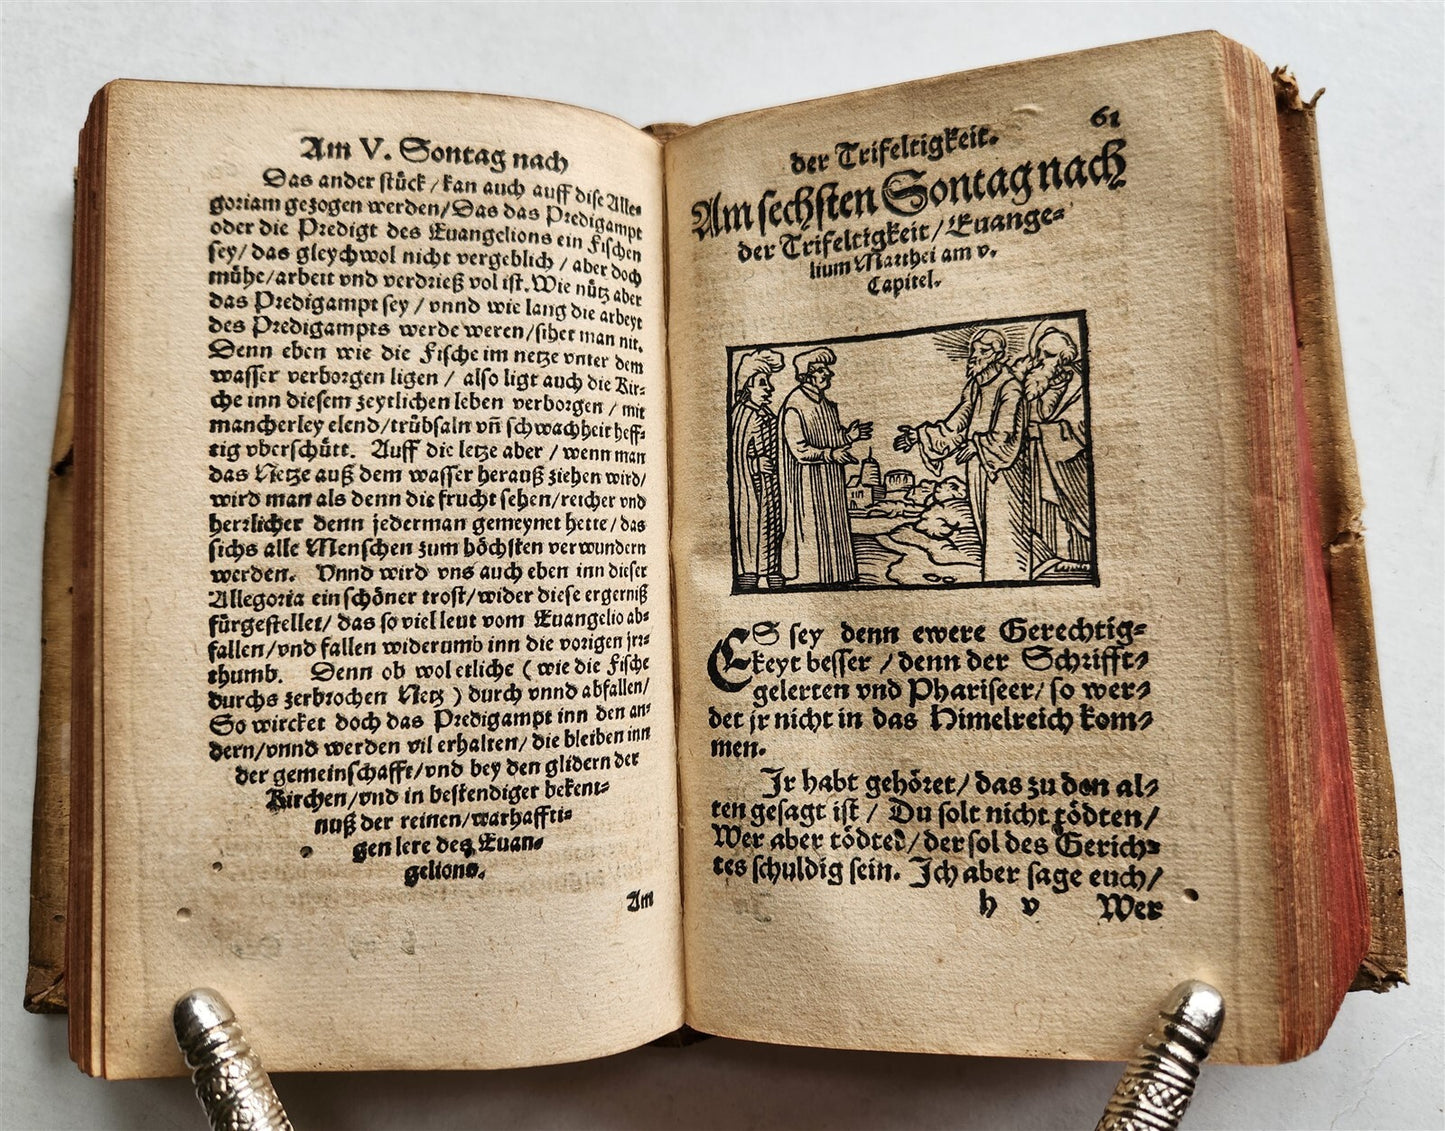 Am V. Sontag nach
Das ander stück / kan auch auff dise Alle-
goriam gezogen werden / Das das Predigampt
oder die Predigt des Euangelions ein Fischen
sey / das gleychwol nicht vergeblich / aber doch
mühe / arbeit vnd verdrieß vol ist. Wie nütz aber
das Predigampt sey / vnnd wie lang die arbeyt
des Predigampts werde weren / sihet man nit.
Denn eben wie die Fische im netze vnter dem
wasser verborgen ligen / also ligt auch die Kir-
che inn diesem zeytlichen leben verborgen / mit
mancherley elend / trübsaln vn̄ schwachheit heff-
tig vberschütt. Auff die letze aber / wenn man
das Netze auß dem wasser herauß ziehen wird /
wird man als denn die frucht sehen / reicher vnd
herrlicher denn jederman gemeynet hette / das
sichs alle Menschen zum höchsten verwundern
werden. Vnnd wird vns auch eben inn dieser
Allegoria ein schöner trost / wider diese ergerniß
fürgestellet / das so viel leut vom Euangelio ab-
fallen / vnd fallen widerumb inn die vorigen jrr-
thumb. Denn ob wol etliche ( wie die Fische
durchs zerbrochen Netz ) durch vnnd abfallen /
So wircket doch das Predigampt inn den an-
dern / vnnd werden vil erhalten / die bleiben inn
der gemeinschafft / vnd bey den glidern der
Kirchen / vnd in bestendiger bekent-
nuß der reinen / warhaffti-
gen lere des Euan-
gelions.
Am
der Trifeltigkeit. 61
Am sechsten Sontag nach
der Trifeltigkeit / Euange-
lium Matthei am v.
Capitel.
ES sey denn ewere Gerechtig-
keyt besser / denn der Schrifft-
gelerten vnd Phariseer / so wer-
det jr nicht in das Himelreich kom-
men.
Jr habt gehöret / das zu den al-
ten gesagt ist / Du solt nicht tödten /
Wer aber tödtet / der sol des Gerich-
tes schuldig sein. Ich aber sage euch /
h v Wer